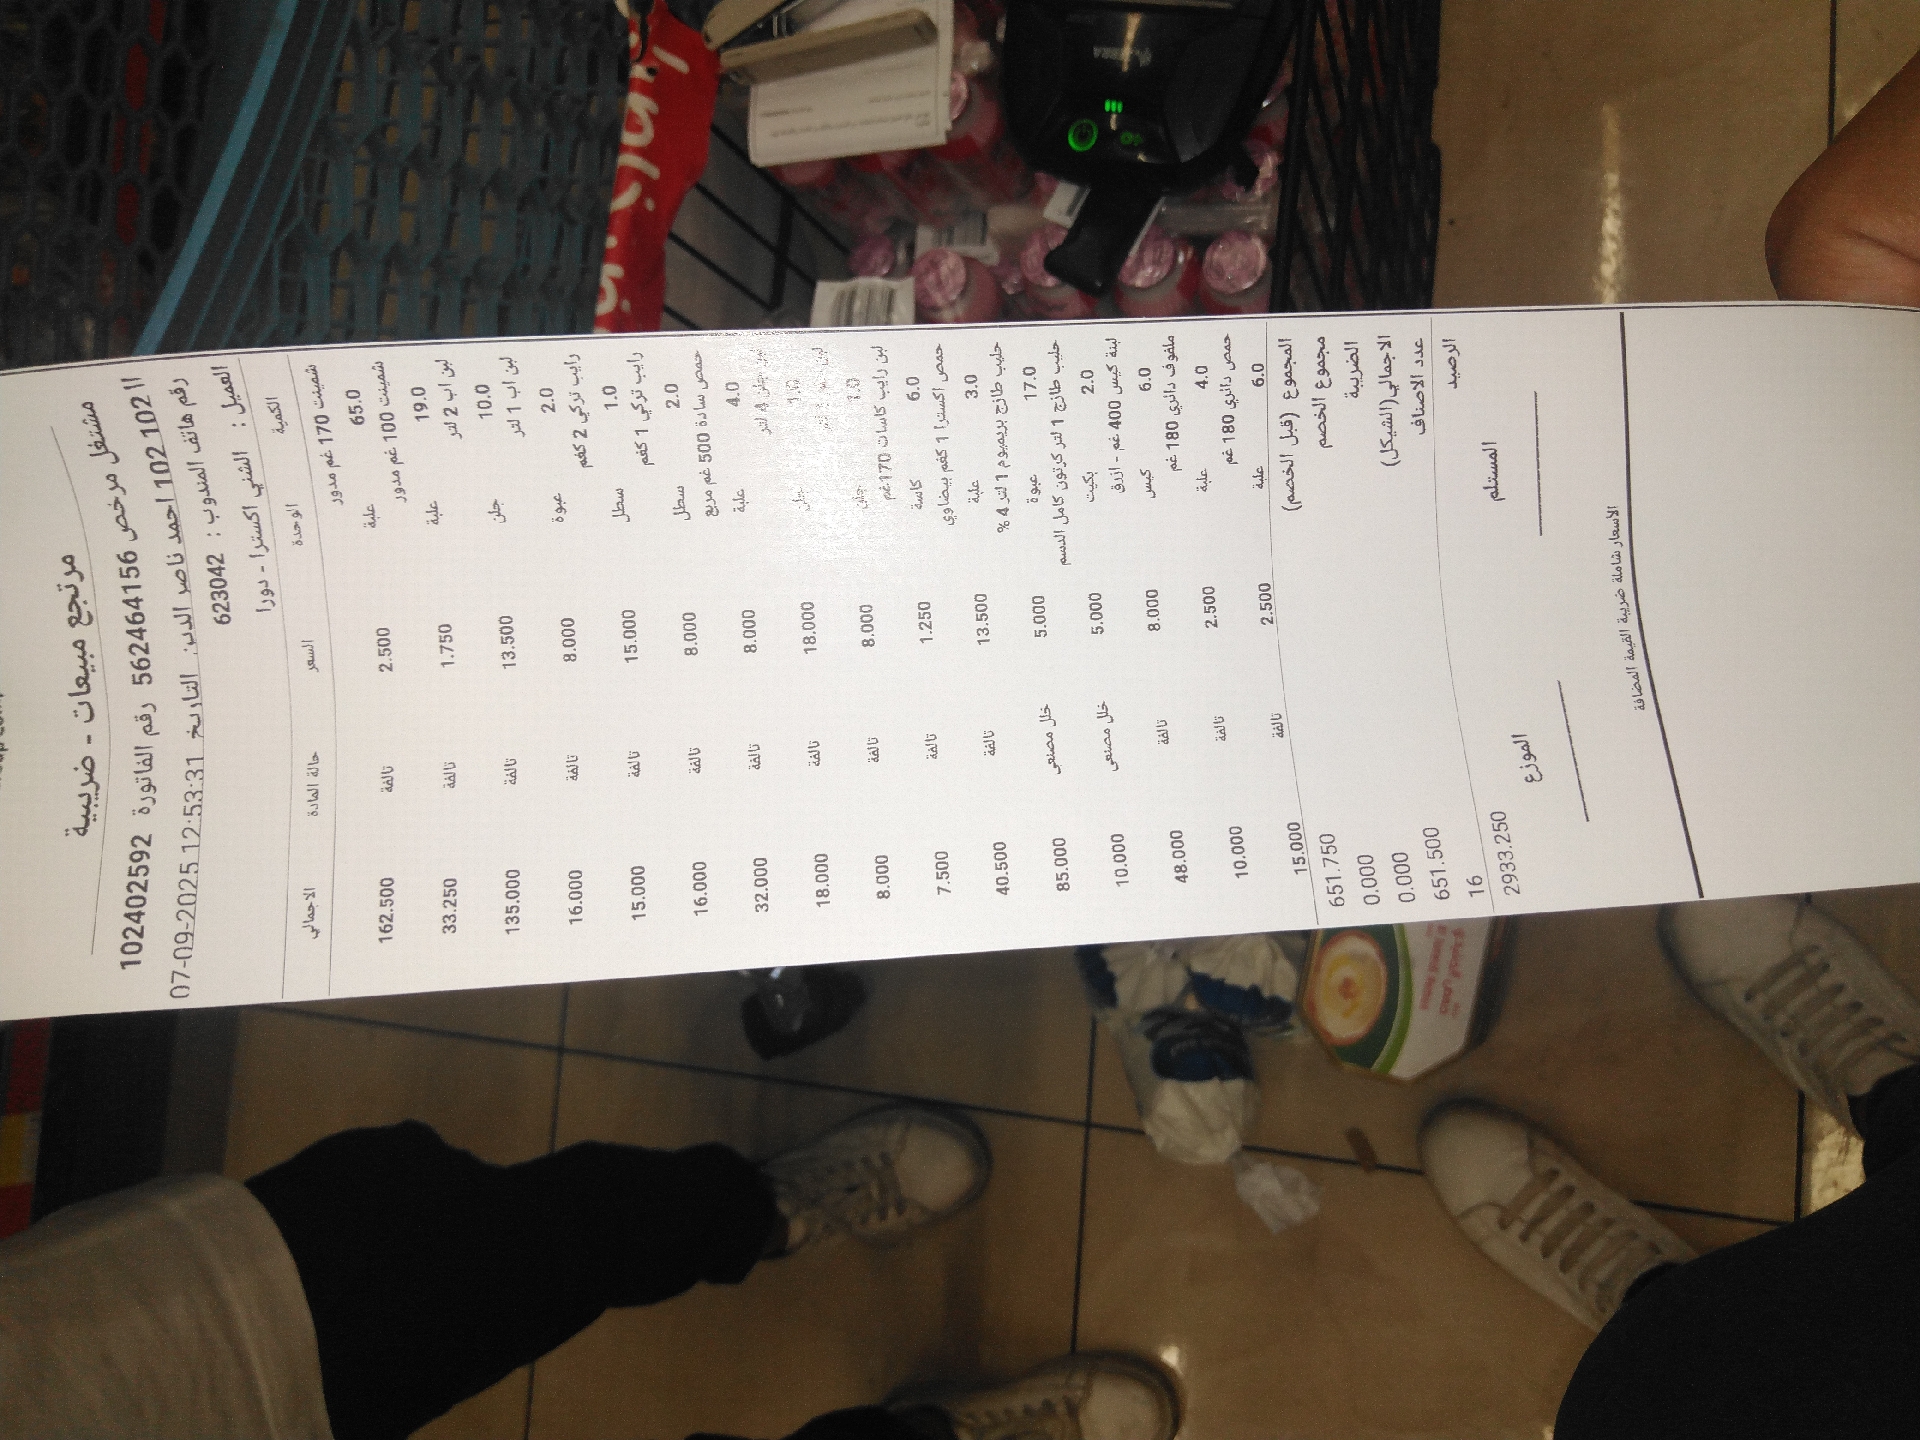 مرتجع مبيعات - ضريبية
مشتغل مرخص 562464156 رقم الفاتورة 102402592
رقم هاتف المندوب: 102 102 احمد ناصر الدين: التاريخ 07-09-2025 12:53:31
العميل : 623042
الشني اكسترا - دورا
الكمية الوحدة السعر حالة المادة الاجمالي
شمينت 170 غم مدور
65.0 علبة 2.500 تالفة 162.500
شمينت 100 غم مدور
19.0 علبة 1.750 تالفة 33.250
لبن اب 2 لتر
10.0 جلن 13.500 تالفة 135.000
لبن اب 1 لتر
2.0 عبوة 8.000 تالفة 16.000
رايب تركي 2 كغم
1.0 سطل 15.000 تالفة 15.000
رايب تركي 1 كغم
2.0 سطل 8.000 تالفة 16.000
حمص سادة 500 غم مربع
4.0 علبة 8.000 تالفة 32.000
لتر
1.0 18.000 تالفة 18.000
1.0 جلن 8.000 تالفة 8.000
لبن رايب كاسات 170 غم
6.0 كاسة 1.250 تالفة 7.500
حمص اكسترا 1 كغم بيضاوي
3.0 علبة 13.500 تالفة 40.500
حليب طازج بريميوم 1 لتر 4 %
17.0 عبوة 5.000 خلل مصنعي 85.000
حليب طازج 1 لتر كرتون كامل الدسم
2.0 بكيت 5.000 خلل مصنعي 10.000
لبنة كيس 400 غم - ازرق
6.0 كيس 8.000 تالفة 48.000
ملفوف دائري 180 غم
4.0 علبة 2.500 تالفة 10.000
حمص دائري 180 غم
6.0 علبة 2.500 تالفة 15.000
المجموع (قبل الخصم) 651.750
مجموع الخصم 0.000
الضريبة 0.000
الاجمالي(الشيكل) 651.500
عدد الاصناف 16
الرصيد 2933.250
المستلم الموزع
الاسعار شاملة ضريبة القيمة المضافة